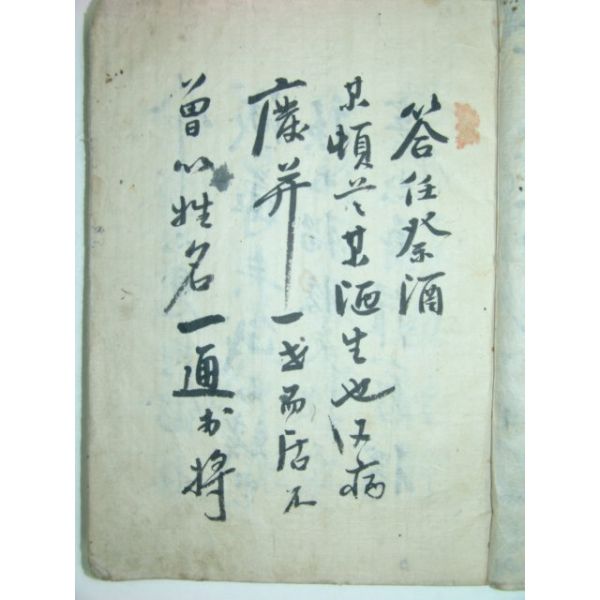 答任祭酒
某頓首某陋生也病
廢并一世而居不
曾以姓名一通於將